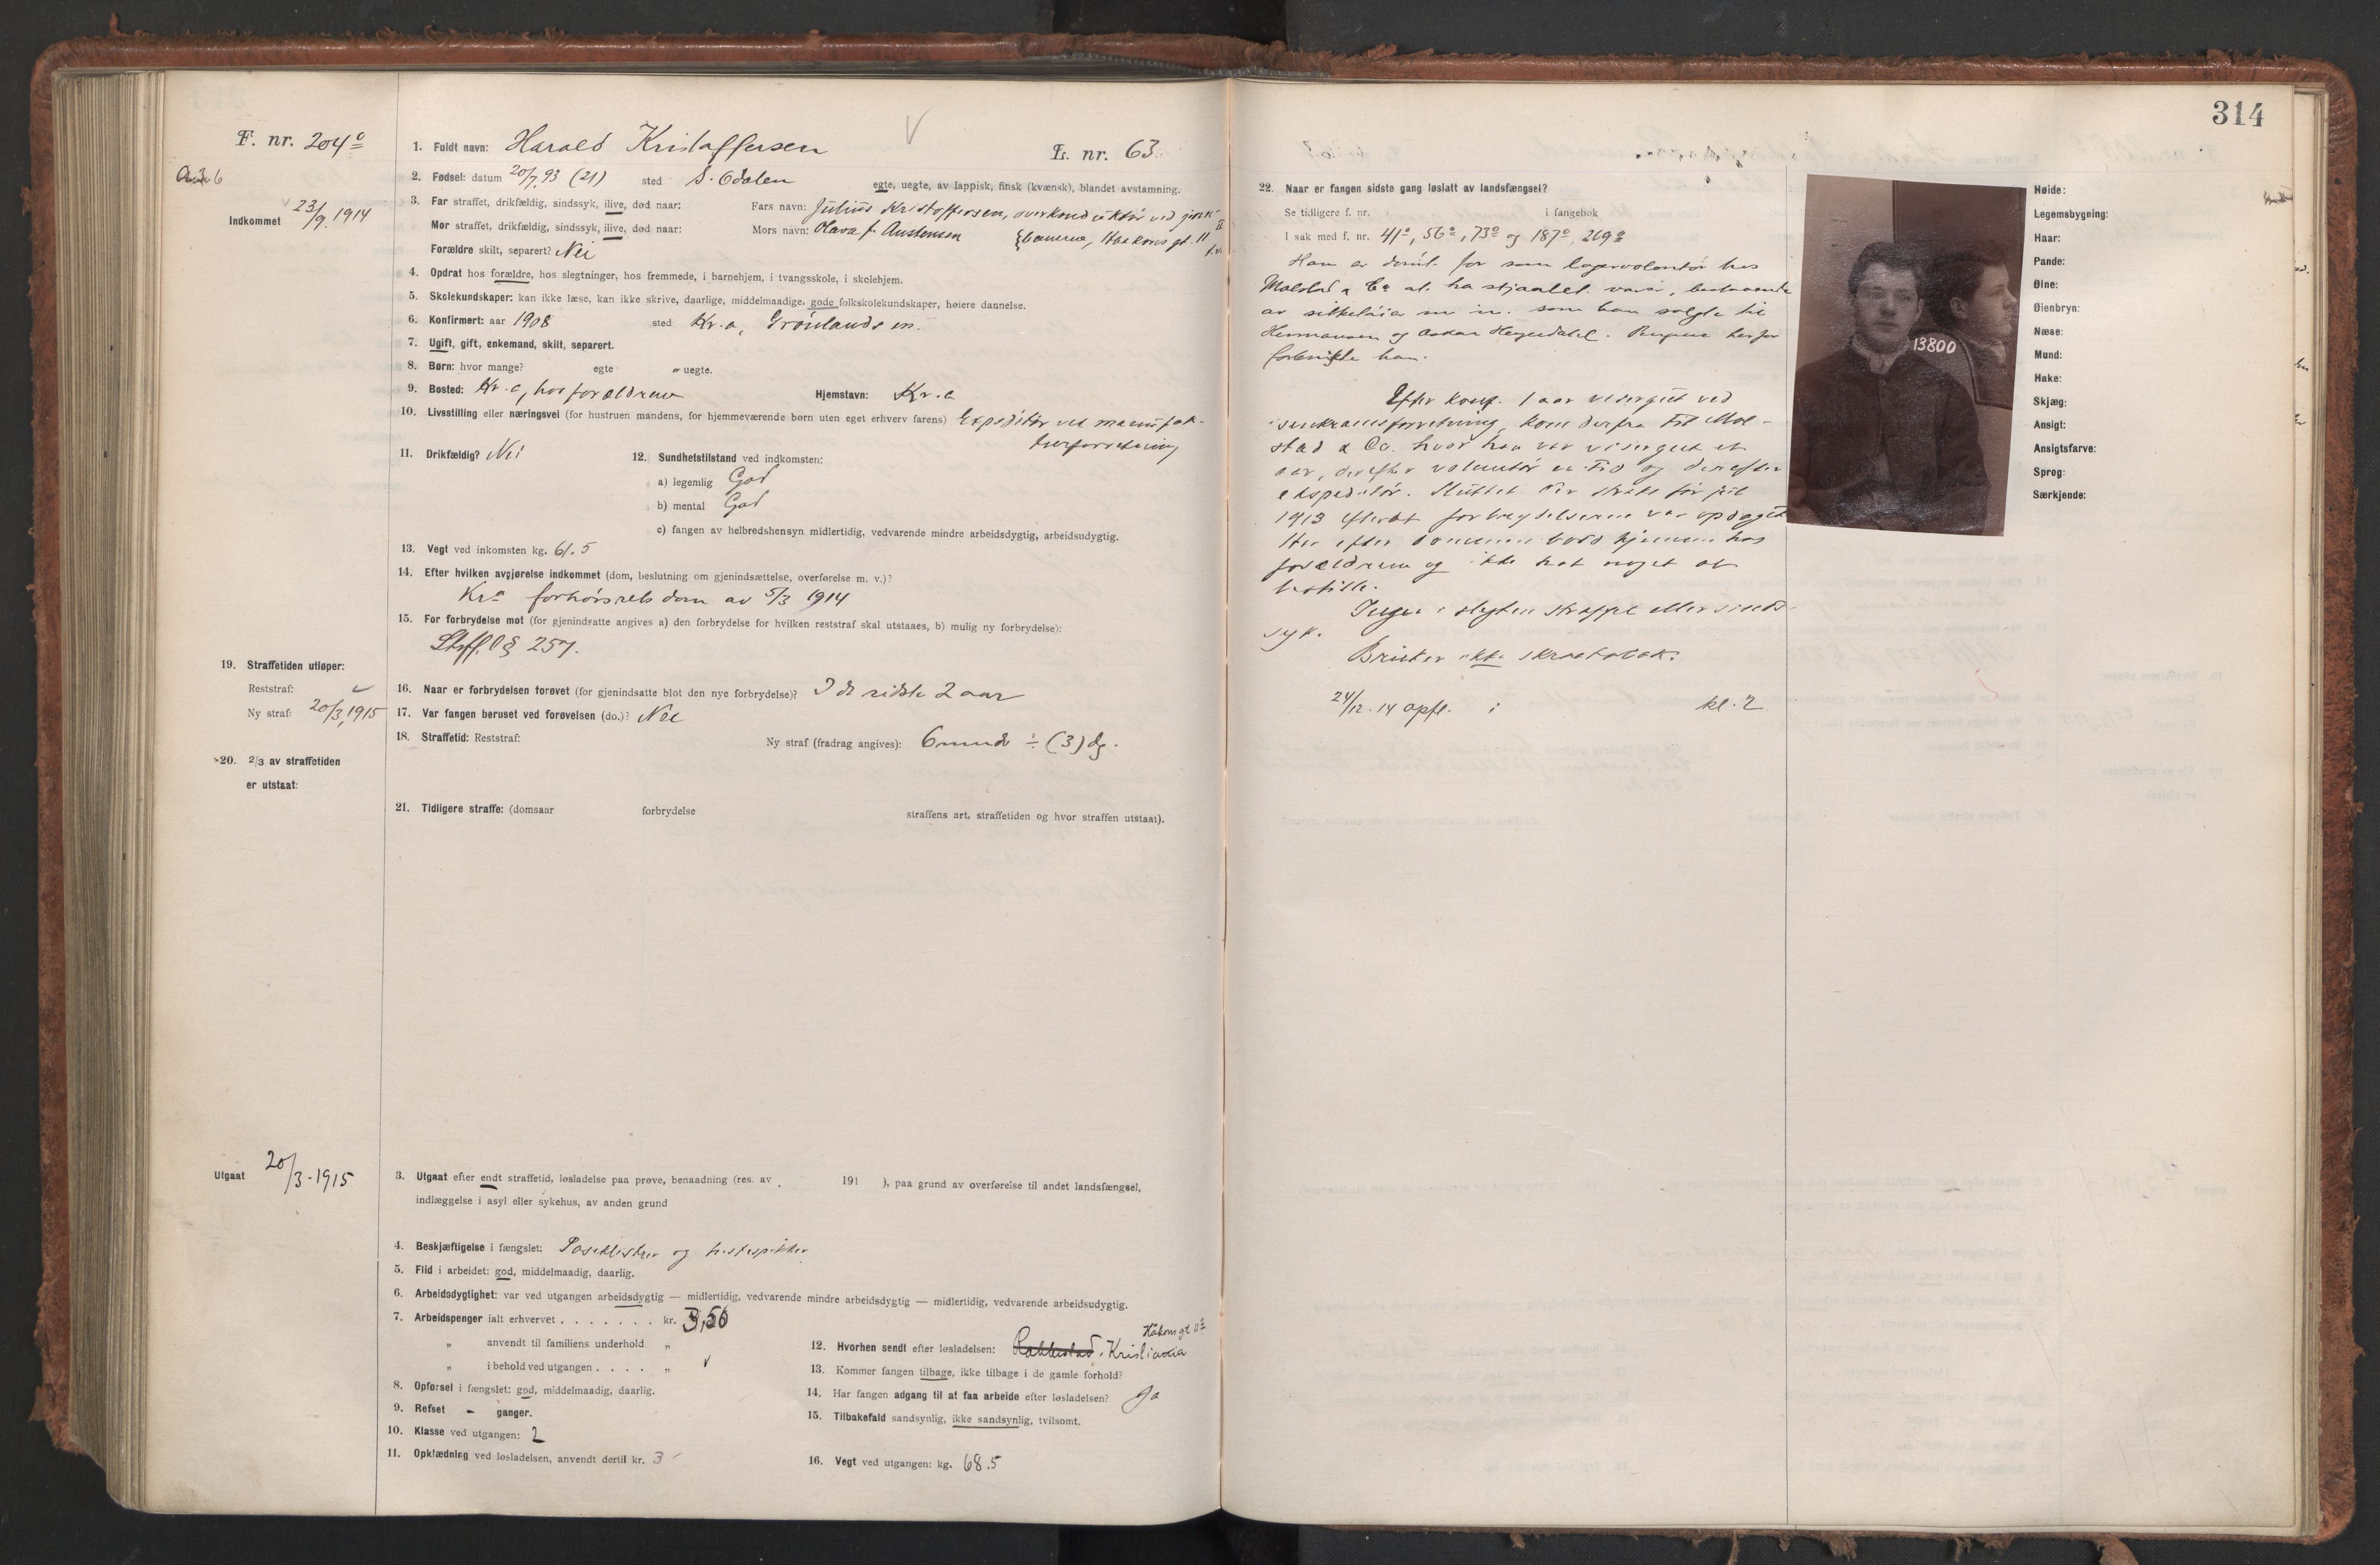 F. nr. 204º
Indkommet 23/9. 1914
1. Fuldt navn: Harald Kristoffersen L. nr. 63.
2. Fødsel: datum 20/7 93 (21) sted S. Odalen egte, uegte, av lappisk, finsk (kvænsk), blandet avstamning.
3. Far straffet, drikfældig, sindssyk, ilive, død naar: Fars navn: Julius Kristoffersen, overkonduktør ved
Mor straffet, drikfældig, sindssyk, ilive, død naar: Mors navn: Olava f. Austensen banerne, Haakons gt. 11
Forældre skilt, separert? Nei
4. Opdrat hos forældre, hos slegtninger, hos fremmede, i barnehjem, i tvangsskole, i skolehjem.
5. Skolekundskaper: kan ikke læse, kan ikke skrive, daarlige, middelmaadige, gode folkskolekundskaper, høiere dannelse.
6. Konfirmert: aar 1908 sted Kr.a, Grønlands m.
7. Ugift, gift, enkemand, skilt, separert.
8. Børn: hvor mange? egte uegte.
9. Bosted: Kr.a, hos forældrene Hjemstavn: Kr.a
10. Livsstilling eller næringsvei (for hustruen mandens, for hjemmeværende børn uten eget erhverv farens) Expeditør ved manufak-
turforretning
11. Drikfældig? Nei 12. Sundhetstilstand ved indkomsten:
a) legemlig God
b) mental God
c) fangen av helbredshensyn midlertidig, vedvarende mindre arbeidsdygtig, arbeidsudygtig.
13. Vegt ved inkomsten kg. 61.5
14. Efter hvilken avgjørelse indkommet (dom, beslutning om gjenindsættelse, overførelse m. v.)?
Kra forhørsrets dom av 5/3 1914
15. For forbrydelse mot (for gjenindsatte angives a) den forbrydelse for hvilken reststraf skal utstaaes, b) mulig ny forbrydelse):
Strffl. § 257.
19. Straffetiden utløper:
Reststraf:
Ny straf: 20/3, 1915
16. Naar er forbrydelsen forøvet (for gjenindsatte blot den nye forbrydelse)? I de sidste 2 aar
17. Var fangen beruset ved forøvelsen (do.)? Nei
18. Straffetid: Reststraf: Ny straf (fradrag angives): 6 mndr ÷ (3) dg.
20. 2/3 av straffetiden
er utstaat:
21. Tidligere straffe: (domsaar forbrydelse straffens art, straffetiden og hvor straffen utstaat).
Utgaat 20/3 - 1915
3. Utgaat efter endt straffetid, løsladelse paa prøve, benaadning (res. av 191 ), paa grund av overførelse til andet landsfængsel,
indlæggelse i asyl eller sykehus, av anden grund
4. Beskjæftigelse i fængslet: og
5. Flid i arbeidet: god, middelmaadig, daarlig.
6. Arbeidsdygtighet: var ved utgangen arbeidsdygtig — midlertidig, vedvarende mindre arbeidsdygtig — midlertidig, vedvarende arbeidsudygtig.
7. Arbeidspenger ialt erhvervet . . . . . . . kr. 3,50
„ anvendt til familiens underhold „
„ i behold ved utgangen . . . . „
8. Opførsel i fængslet: god, middelmaadig, daarlig.
9. Refset - ganger.
10. Klasse ved utgangen: 2
11. Opklædning ved løsladelsen, anvendt dertil kr. 3
Håkons gt 11
12. Hvorhen sendt efter løsladelsen: Rakkestad, Kristiania
13. Kommer fangen tilbage, ikke tilbage i de gamle forhold?
14. Har fangen adgang til at faa arbeide efter løsladelsen? Ja
15. Tilbakefald sandsynlig, ikke sandsynlig, tvilsomt.
16. Vegt ved utgangen: kg. 68.5
314
22. Naar er fangen sidste gang løslatt av landsfængsel?
Se tidligere f. nr. i fangebok
I sak med f. nr. 41º, 56º, 73º og 187º, 269º
Han er dømt for som lagervolontør hos
Molstad & Co at ha stjaalet varer, bestaaende
av silketøier m. m. som han solgte til
Hermansen og Oskar Heyerdahl. Pengene herfor
forbrukte han.
Efter konf. 1 aar visergut ved
isenkramforretning, kom derfra til Mol-
stad & Co. hvor han var visergut et
aar, derefter volontør en tid og derefter
ekspeditør. Sluttet der straks før jul
1913 efterat forbrydelserne var opdaget
Har efter dommen bodd hjemme hos
forældrene og ikke hat noget at
bestille.
Ingen i slegten straffet eller sinds-
syk.
Bruker ikke skraatobak.
24/12-14 opfl. i kl. 2
13800
Høide:
Legemsbygning:
Haar:
Pande:
Øine:
Øienbryn:
Næse:
Mund:
Hake:
Skjæg:
Ansigt:
Ansigtsfarve:
Sprog:
Særkjende: